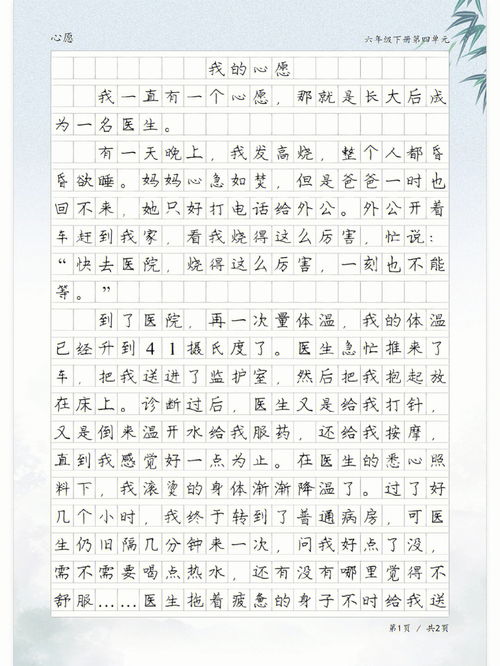 心愿
六年级下册第四单元
我的心愿
我一直有一个心愿，那就是长大后成
为一名医生。
有一天晚上，我发高烧，整个人都昏
昏欲睡。妈妈心急如焚，但是爸爸一时也
回不来，她只好打电话给外公。外公开着
车赶到我家，看我烧得这么厉害，忙说：
“快去医院，烧得这么厉害，一刻也不能
等。”
到了医院，再一次量体温，我的体温
已经升到41摄氏度了。医生急忙推来了
车，把我送进了监护室，然后把我抱起放
在床上。诊断过后，医生又是给我打针，
又是倒来温开水给我服药，还给我按摩，
直到我感觉好一点为止。在医生的悉心照
料下，我滚烫的身体渐渐降温了。过了好
几个小时，我终于转到了普通病房，可医
生仍旧隔几分钟来一次，问我好点了没，
需不需要喝点热水，还有没有哪里觉得不
舒服……医生拖着疲惫的身子不时给我送
第1页 / 共2页